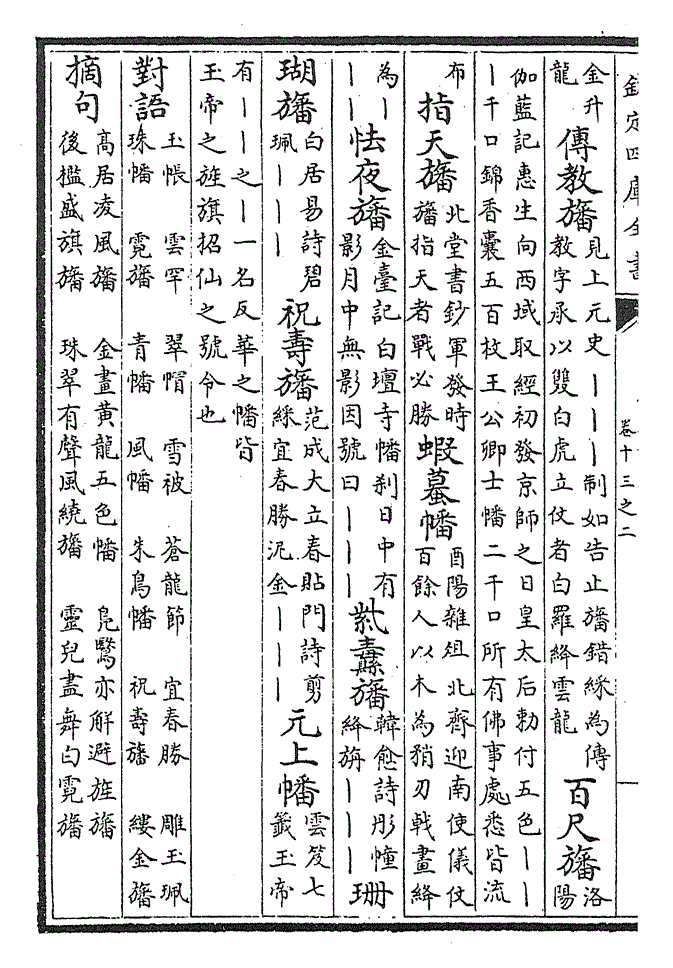 欽定四庫全書 卷十三之二
金升龍 傳教旛 見上元史｜｜｜制如告止旛錯緣為傳教字承以雙白虎立仗者白羅絳雲龍 百尺旛 洛陽
伽藍記惠生向西域取經初發京師之日皇太后勅付五色｜｜｜千口錦香囊五百枚王公卿士幡二千口所有佛事處悉皆流
布 指天旛 北堂書鈔軍發時旛指天者戰必勝 蝦蟇幡 酉陽雜俎北齊迎南使儀仗百餘人以木為矟刃戟畫絳
為｜｜｜ 怯夜旛 金臺記白壇寺幡刹日中有影月中無影因號曰｜｜｜ 紫纛旛 韓愈詩彤幢絳旃｜｜｜ 珊
瑚旛 白居易詩碧珮｜｜｜ 祝壽旛 范成大立春貼門詩剪綵宜春勝泥金｜｜｜ 元上幡 雲笈七籤玉帝
有｜｜之｜一名反華之幡皆玉帝之旌旗招仙之號令也
對語 玉帳 珠幡 雲罕 霓旛 翠帽 青幡 雪被 風幡 蒼龍節 朱鳥幡 宜春勝 祝壽旛 雕玉珮 縷金旛
摘句 高居凌風旛 後檻盛旗旛 金畫黃龍五色幡 珠翠有聲風繞旛 鳧鷖亦解避旌旛 靈兒盡舞白霓旛